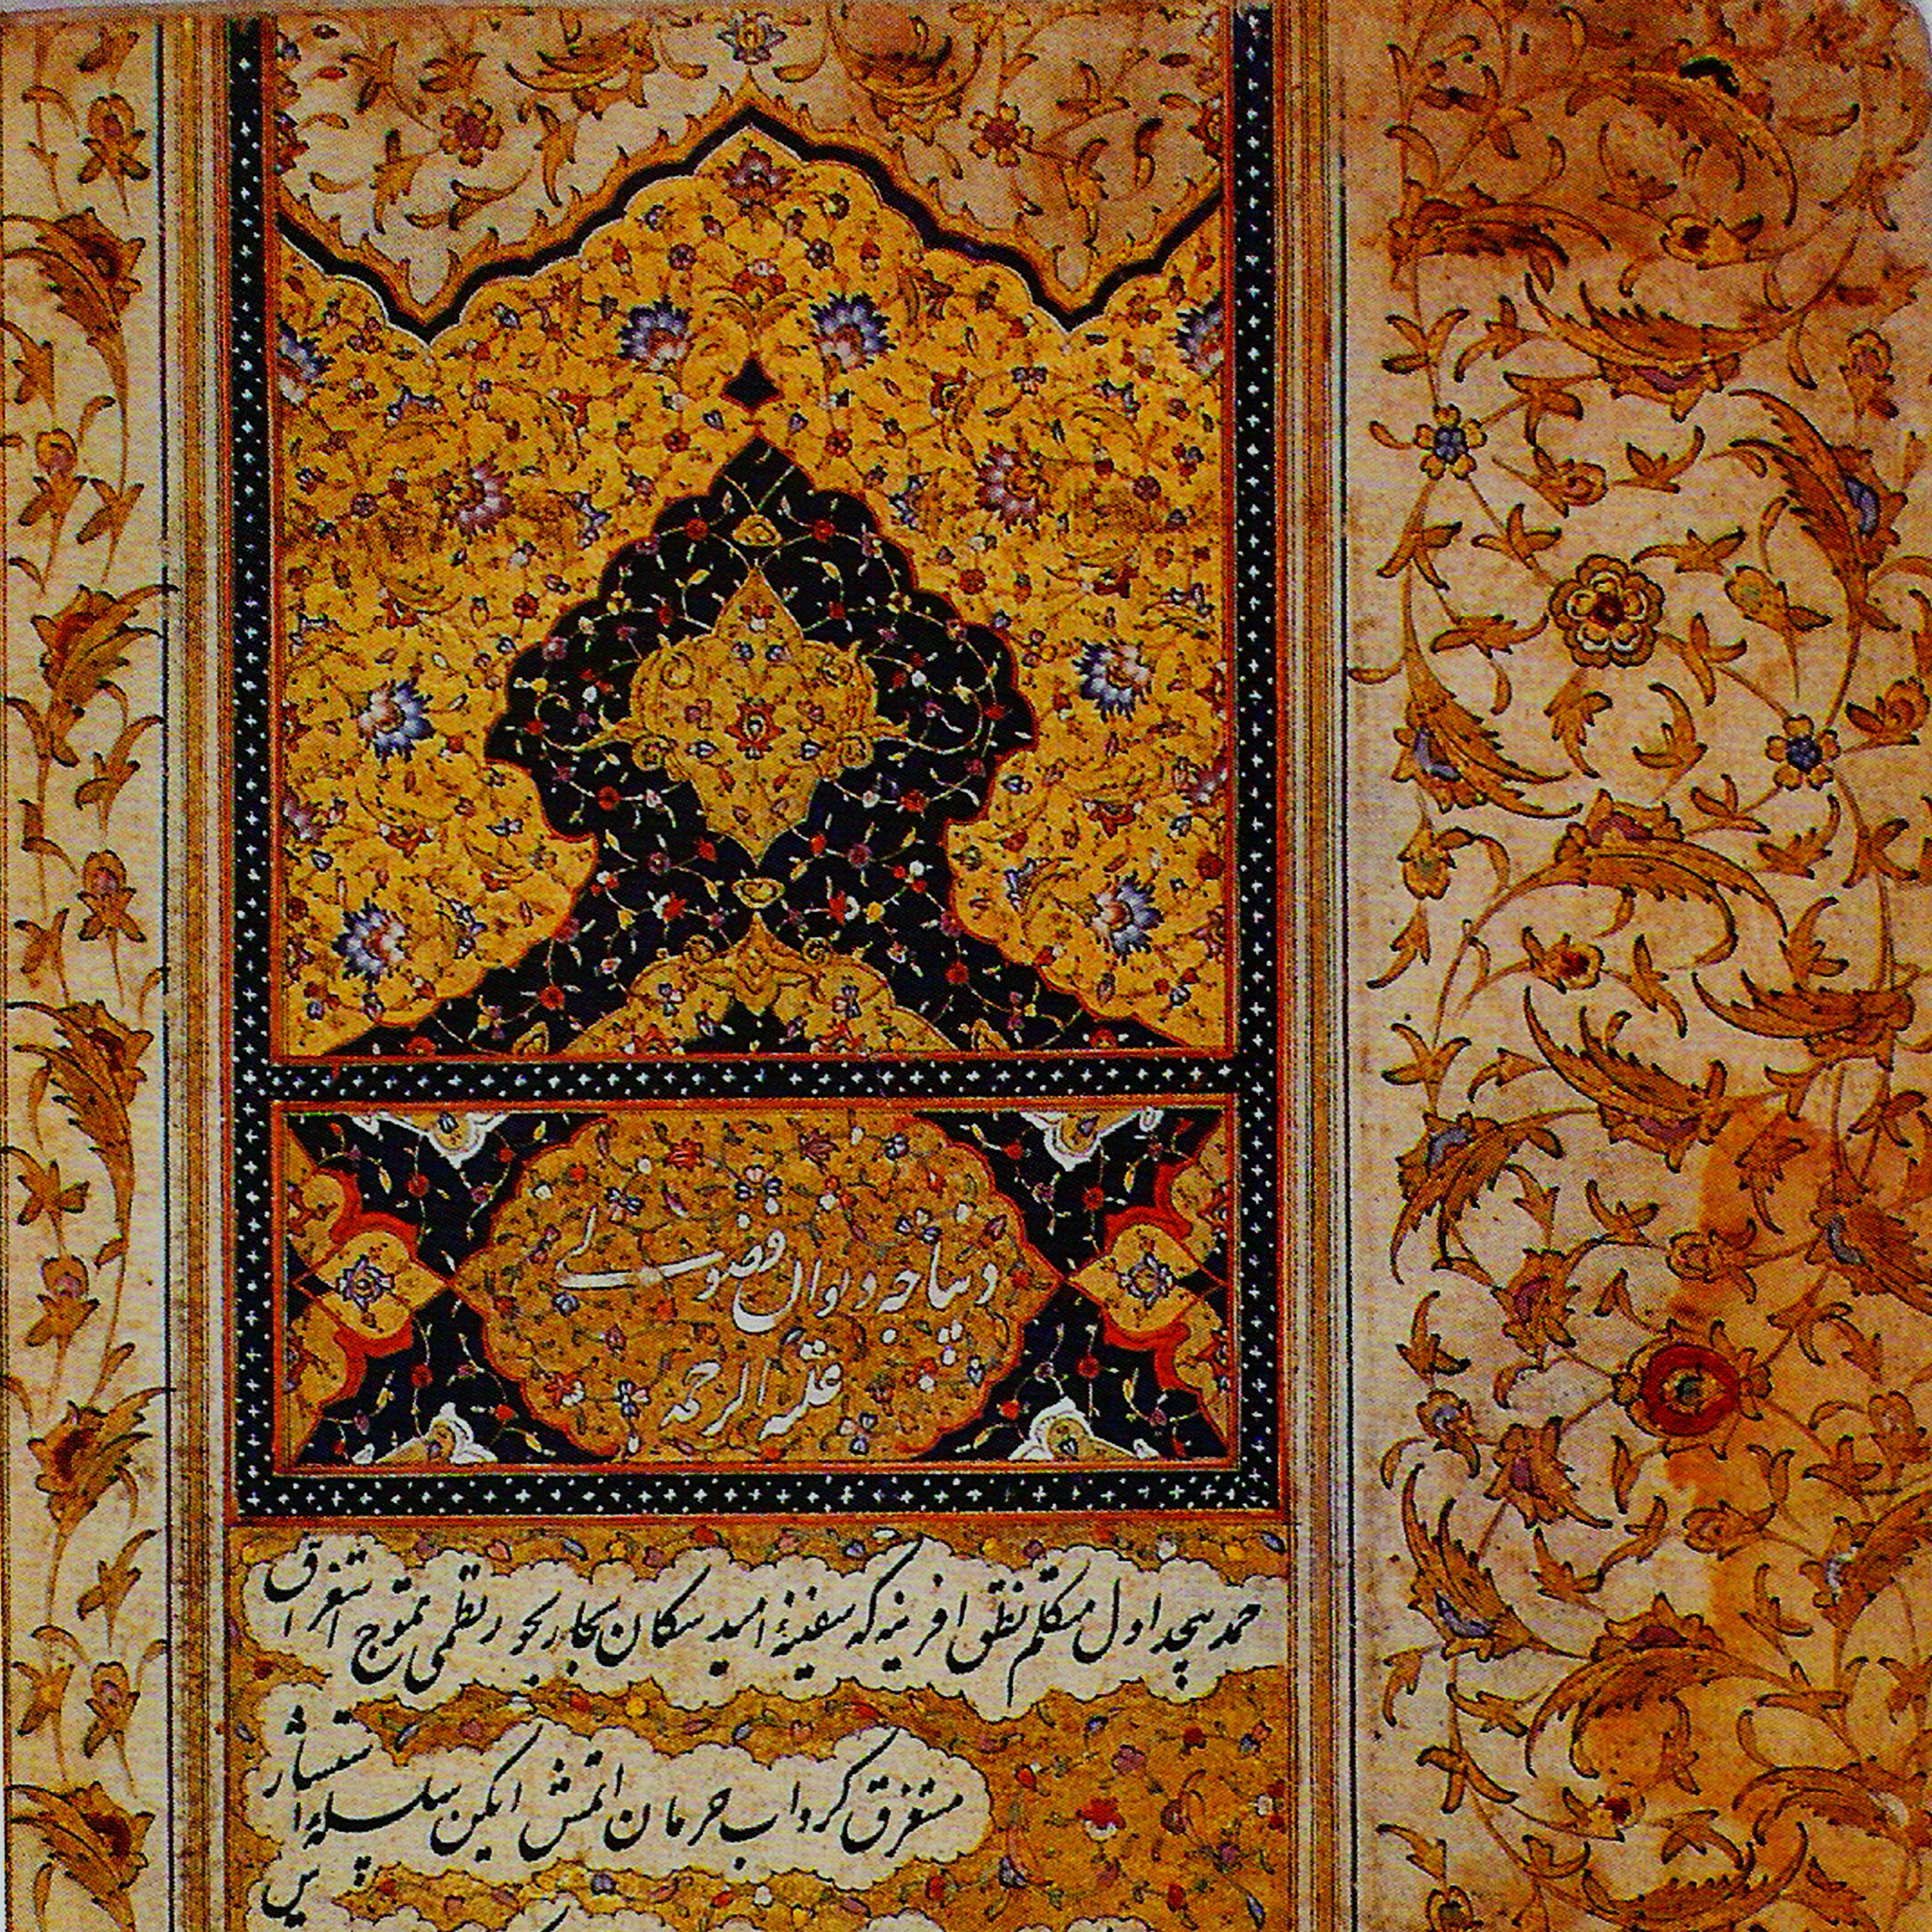 دیباجه دیوان فضولی
علیه الرحمه
حمد بیحد اول متکلم نطق آفرینه که سفینهٔ امید سکان بحار بحور نظمی تموج استغراق
مستغرق کرداب حرمان اتمش ایکن سلسلهٔ